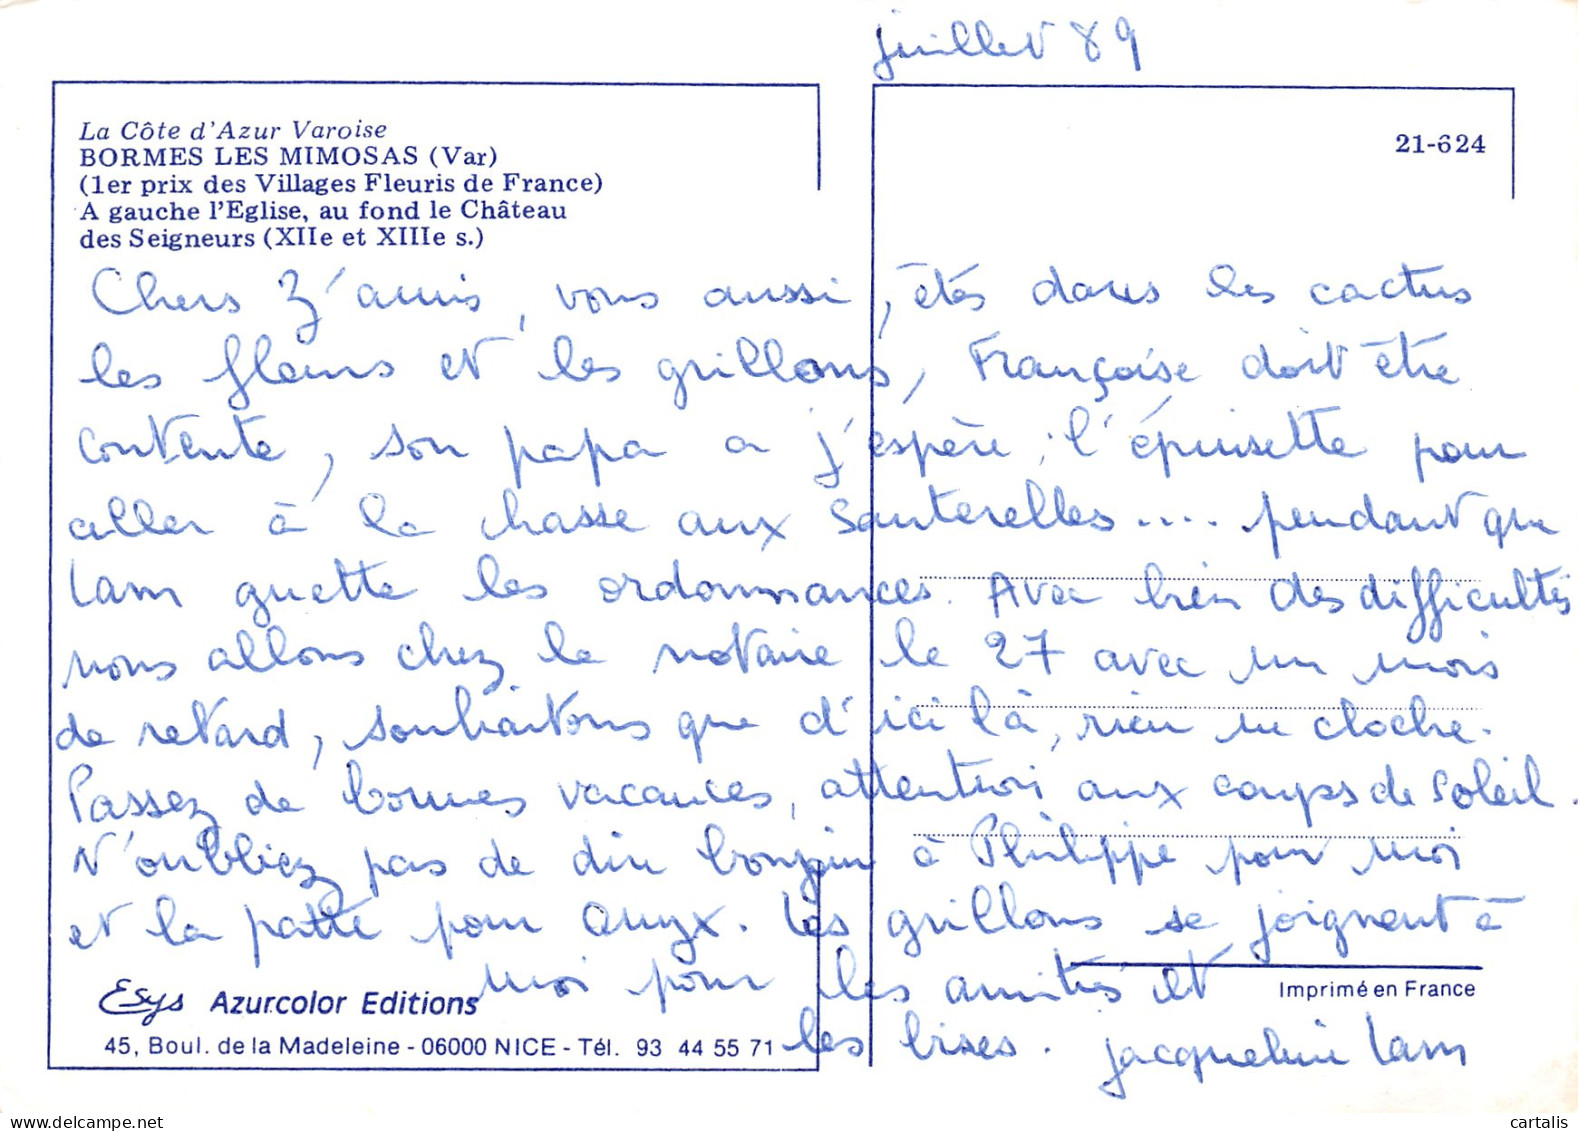 juillet 89
La Côte d'Azur Varoise
BORMES LES MIMOSAS (Var)
(1er prix des Villages Fleuris de France)
A gauche l'Eglise, au fond le Château
des Seigneurs (XIIe et XIIIe s.)
21-624
Chers z'amis, vous aussi, êtés dans les cactus
les fleurs et les grillons, Françoise doit être
contente, son papa a j'espère, l'épuisette pour
aller à la chasse aux Sauterelles.... pendant que
Lam guette les ordonnances. Avec bien des difficultés
nous allons chez le notaire le 27 avec un mois
de retard, souhaitons que d'ici là, rien ne cloche.
Passez de bonnes vacances, attention aux coups de Soleil.
N'oubliez pas de dire bonjour à Philippe pour moi
et la patte pour Onyx. Les grillons se joignent à
moi pour les amitiés et
les bises. Jacqueline Lam
Esys Azurcolor Editions
Imprimé en France
45, Boul. de la Madeleine - 06000 NICE - Tél. 93 44 55 71
www.delcampe.net
cartalis